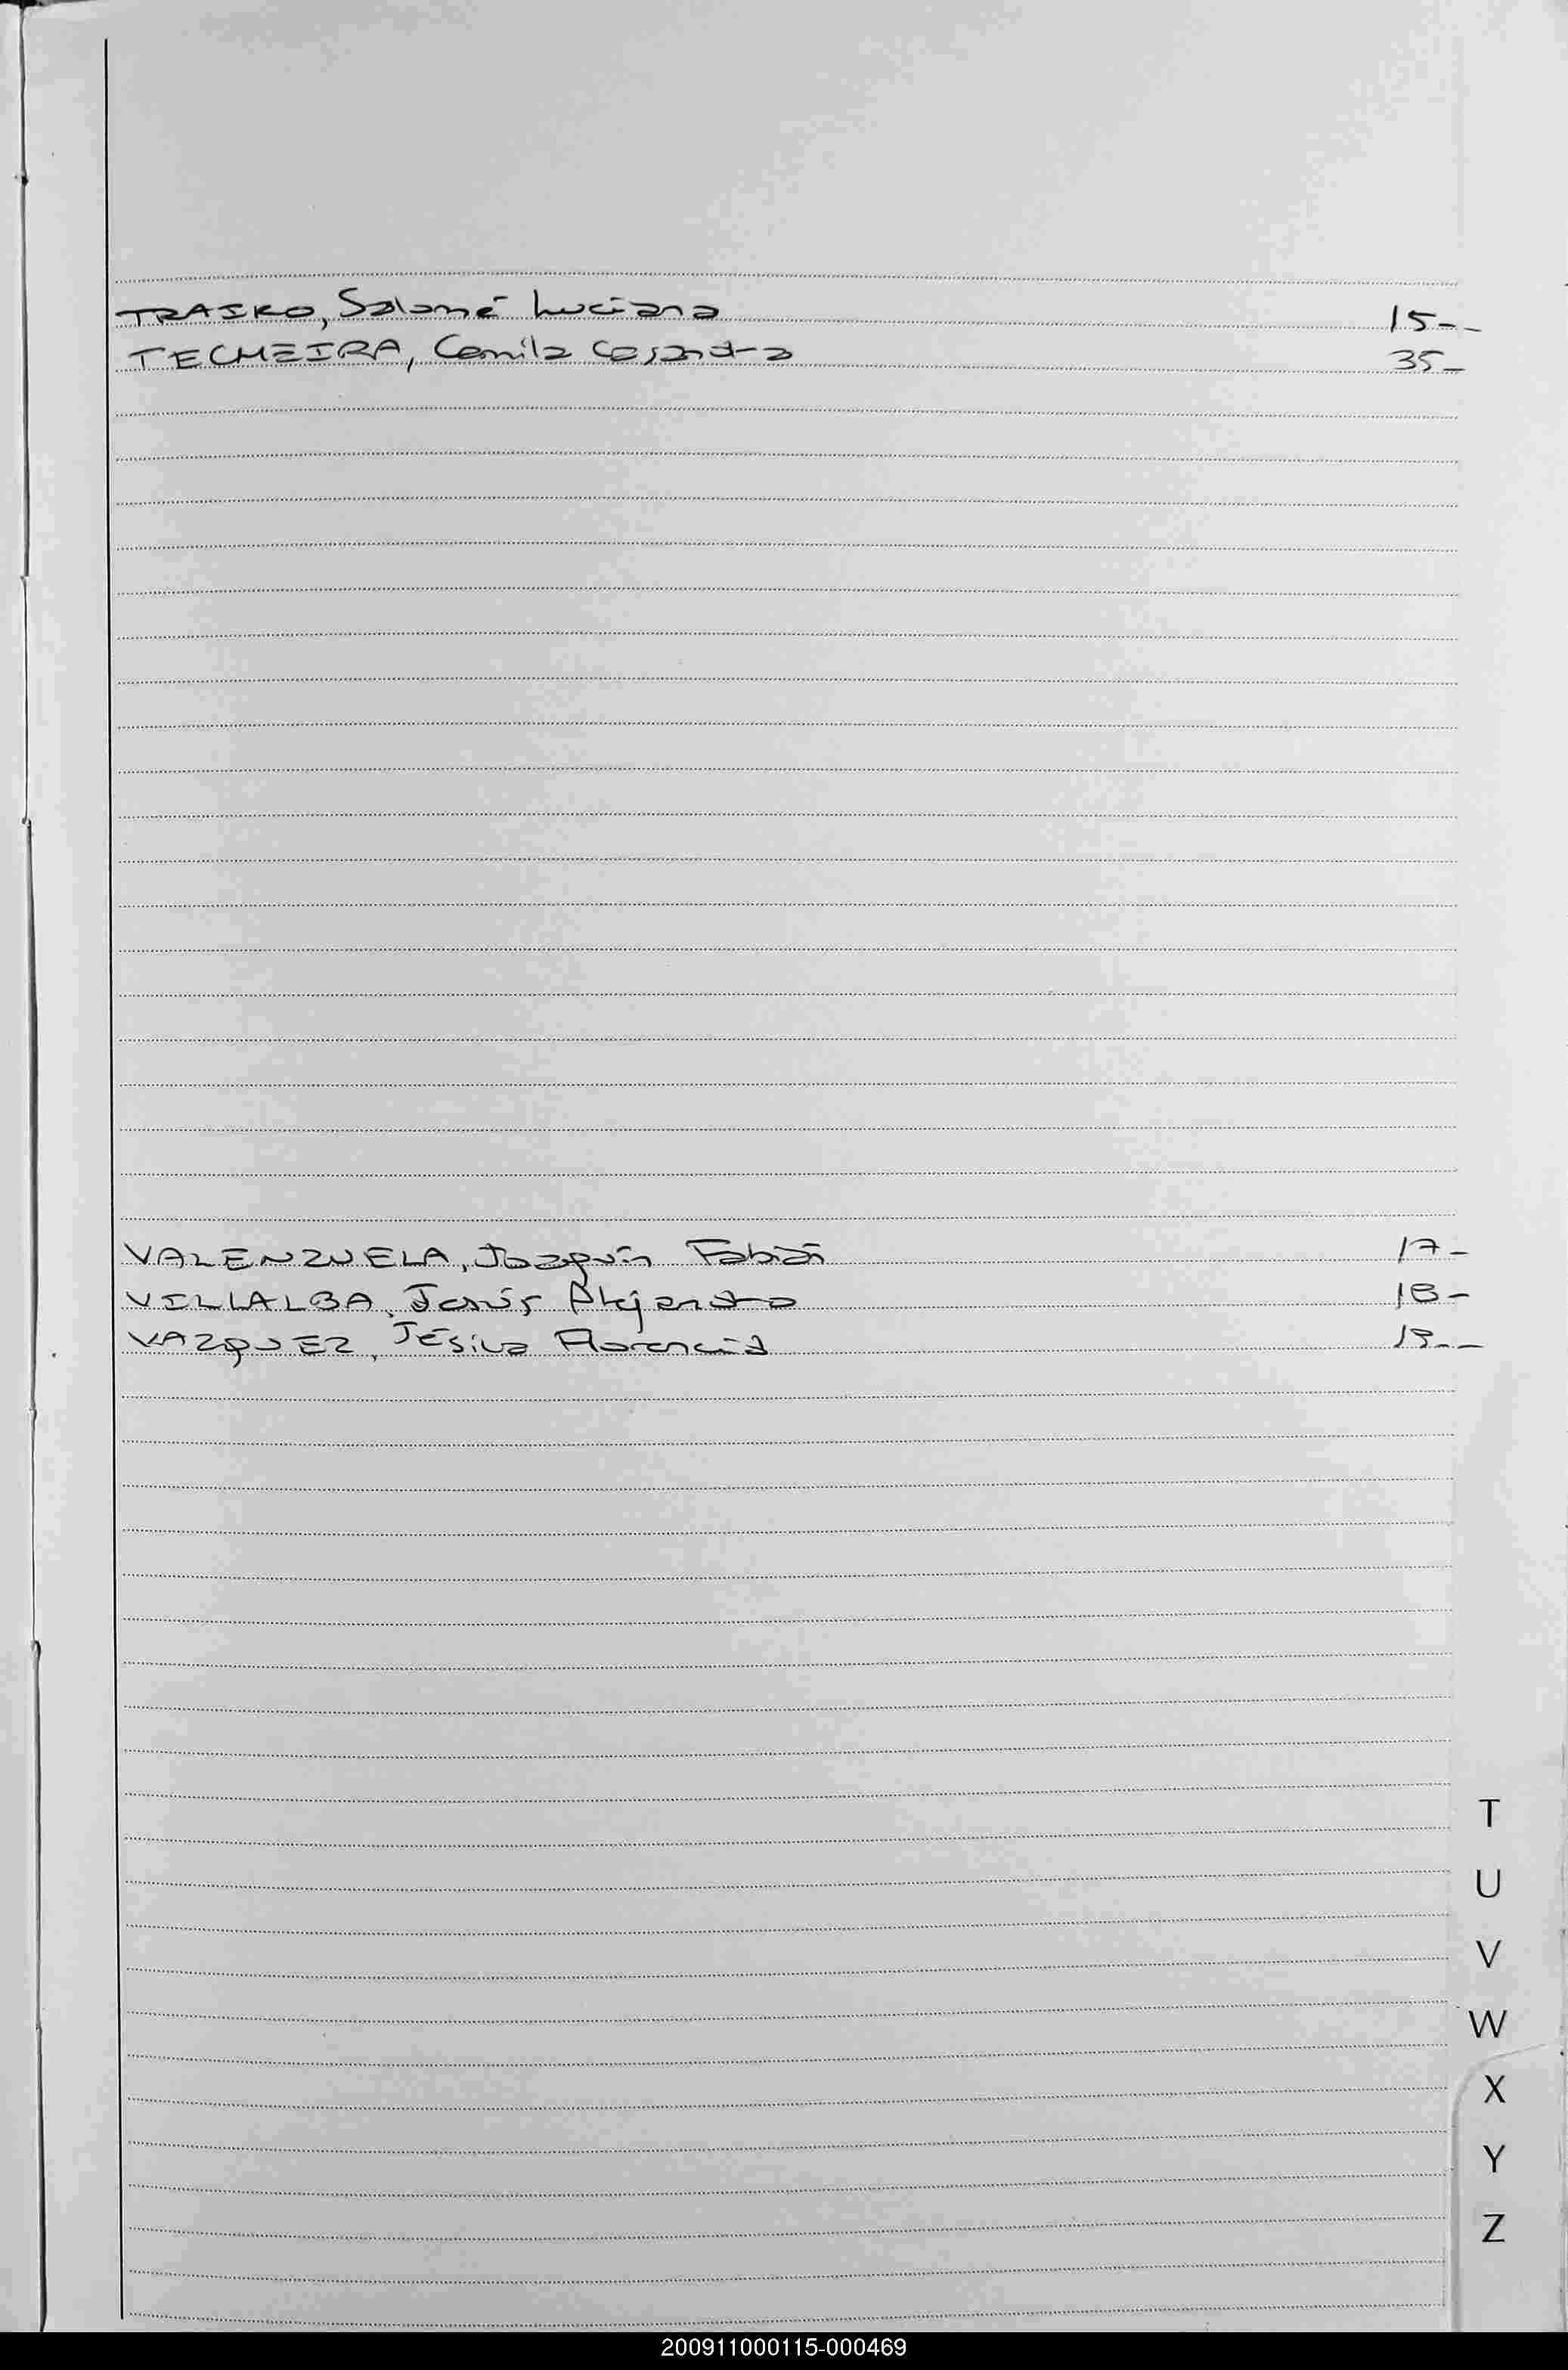 TRASKO, Salomé Luciana 15--
TECHEIRA, Camila Casandra 35-
VALENZUELA, Joaquín Fabián 17-
VILLALBA, Alejandro 18-
VAZQUEZ, Jésica Florencia 19--
T
U
V
W
X
Y
Z
200911000115-000469